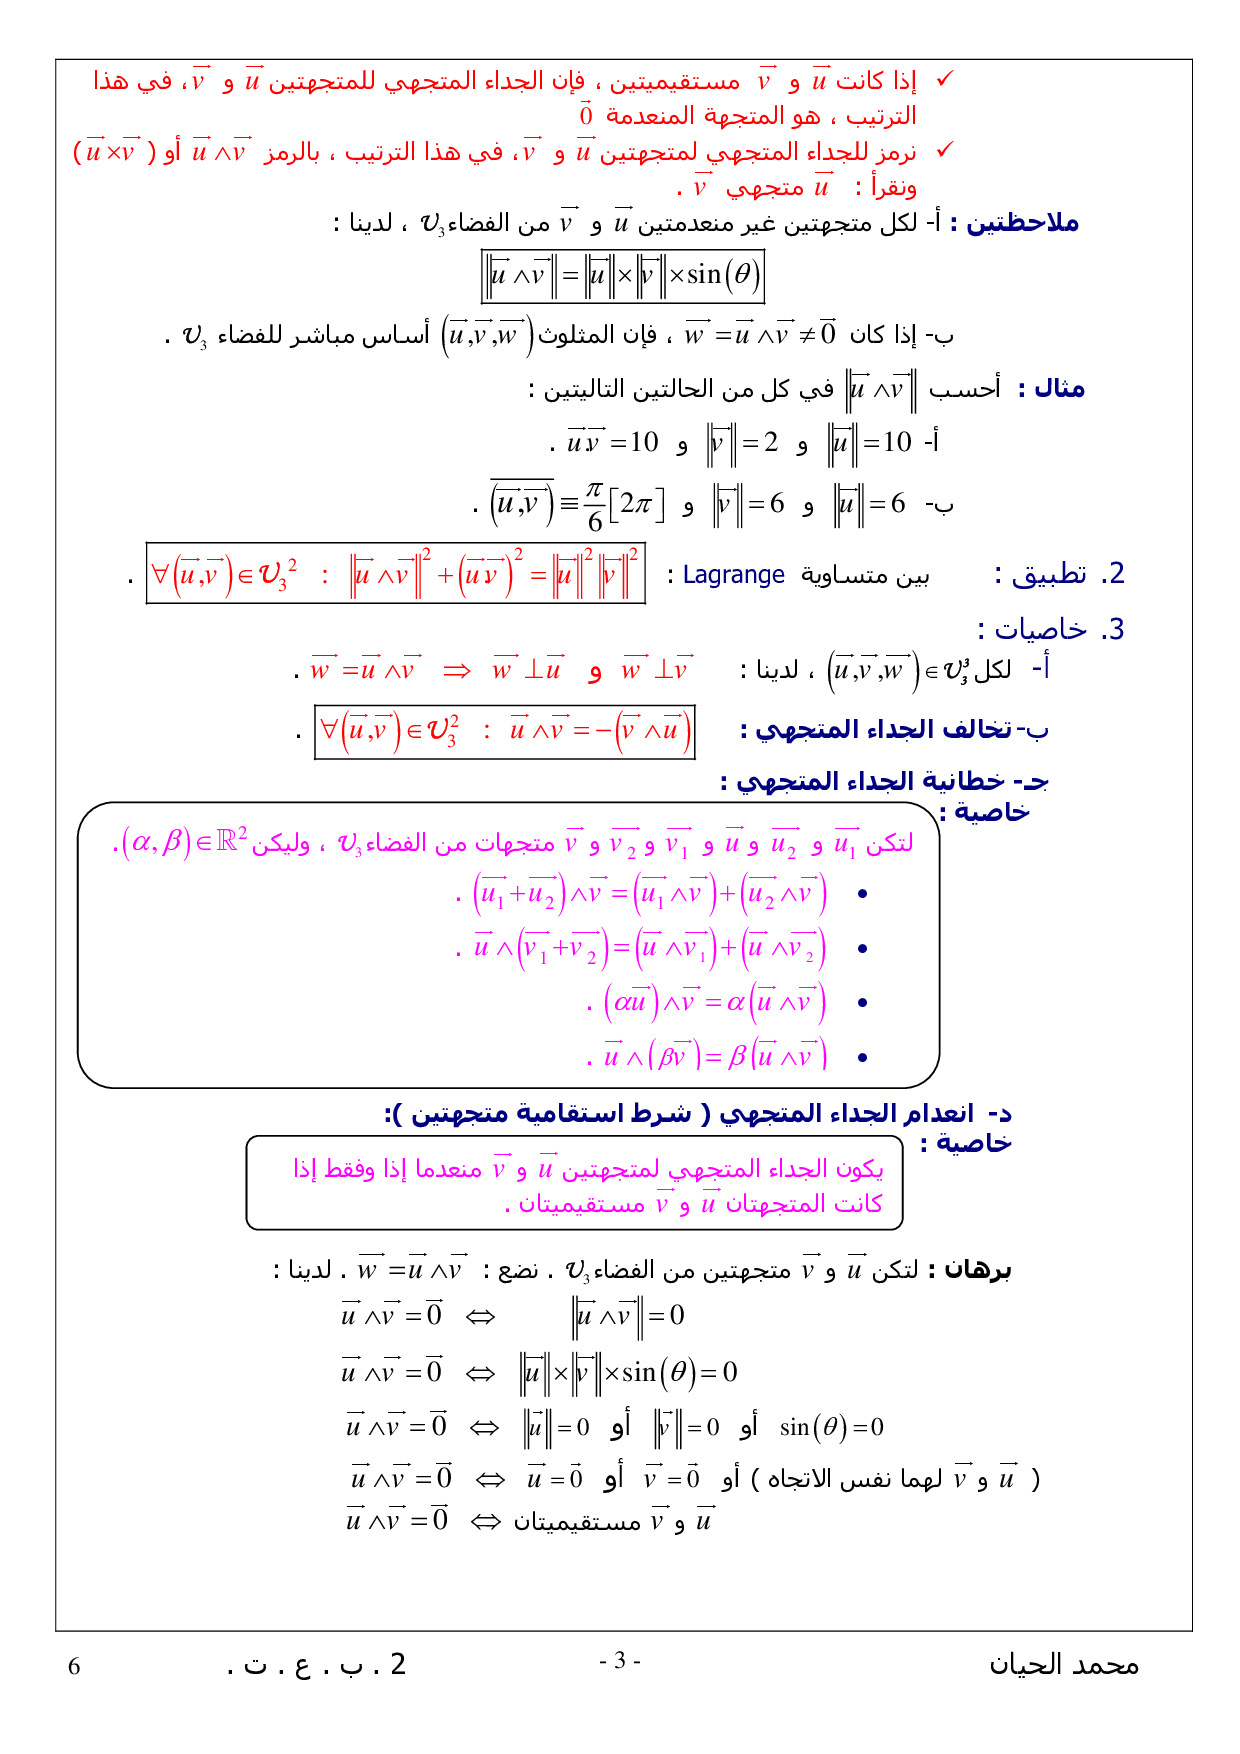 ✓ إذا كانت $\vec{u}$ و $\vec{v}$ مستقيميتين ، فإن الجداء المتجهي للمتجهتين $\vec{u}$ و $\vec{v}$ ، في هذا
الترتيب ، هو المتجهة المنعدمة $\vec{0}$
✓ نرمز للجداء المتجهي لمتجهتين $\vec{u}$ و $\vec{v}$ ، في هذا الترتيب ، بالرمز $\vec{u} \wedge \vec{v}$ أو ( $\vec{u} \times \vec{v}$ )
ونقرأ : $\vec{u}$ متجهي $\vec{v}$ .
ملاحظتين : أ- لكل متجهتين غير منعدمتين $\vec{u}$ و $\vec{v}$ من الفضاء $\mathcal{V}_3$ ، لدينا :
$\|\vec{u} \wedge \vec{v}\| = \|\vec{u}\| \times \|\vec{v}\| \times \sin(\theta)$
ب- إذا كان $\vec{w} = \vec{u} \wedge \vec{v} \neq \vec{0}$ ، فإن المثلوث $(\vec{u}, \vec{v}, \vec{w})$ أساس مباشر للفضاء $\mathcal{V}_3$ .
مثال : أحسب $\|\vec{u} \wedge \vec{v}\|$ في كل من الحالتين التاليتين :
أ- $\|\vec{u}\| = 10$ و $\|\vec{v}\| = 2$ و $\vec{u}.\vec{v} = 10$ .
ب- $\|\vec{u}\| = 6$ و $\|\vec{v}\| = 6$ و $\overline{(\vec{u}, \vec{v})} \equiv \frac{\pi}{6}[2\pi]$ .
2. تطبيق : بين متساوية Lagrange : $\forall(\vec{u}, \vec{v}) \in \mathcal{V}_3^2 : \|\vec{u} \wedge \vec{v}\|^2 + (\vec{u}.\vec{v})^2 = \|\vec{u}\|^2 \|\vec{v}\|^2$ .
3. خاصيات :
أ- لكل $(\vec{u}, \vec{v}, \vec{w}) \in \mathcal{V}_3^3$ ، لدينا : $\vec{w} = \vec{u} \wedge \vec{v} \Rightarrow \vec{w} \perp \vec{u}$ و $\vec{w} \perp \vec{v}$ .
ب- تخالف الجداء المتجهي : $\forall(\vec{u}, \vec{v}) \in \mathcal{V}_3^2 : \vec{u} \wedge \vec{v} = -(\vec{v} \wedge \vec{u})$ .
جـ- خطانية الجداء المتجهي :
خاصية :
لتكن $\vec{u_1}$ و $\vec{u_2}$ و $\vec{u}$ و $\vec{v_1}$ و $\vec{v_2}$ و $\vec{v}$ متجهات من الفضاء $\mathcal{V}_3$ ، وليكن $(\alpha, \beta) \in \mathbb{R}^2$ .
• $(\vec{u_1} + \vec{u_2}) \wedge \vec{v} = (\vec{u_1} \wedge \vec{v}) + (\vec{u_2} \wedge \vec{v})$ .
• $\vec{u} \wedge (\vec{v_1} + \vec{v_2}) = (\vec{u} \wedge \vec{v_1}) + (\vec{u} \wedge \vec{v_2})$ .
• $(\alpha\vec{u}) \wedge \vec{v} = \alpha(\vec{u} \wedge \vec{v})$ .
• $\vec{u} \wedge (\beta\vec{v}) = \beta(\vec{u} \wedge \vec{v})$ .
د- انعدام الجداء المتجهي ( شرط استقامية متجهتين ):
خاصية :
يكون الجداء المتجهي لمتجهتين $\vec{u}$ و $\vec{v}$ منعدما إذا وفقط إذا
كانت المتجهتان $\vec{u}$ و $\vec{v}$ مستقيميتان .
برهان : لتكن $\vec{u}$ و $\vec{v}$ متجهتين من الفضاء $\mathcal{V}_3$ . نضع : $\vec{w} = \vec{u} \wedge \vec{v}$ . لدينا :
$\vec{u} \wedge \vec{v} = \vec{0} \Leftrightarrow \|\vec{u} \wedge \vec{v}\| = 0$
$\vec{u} \wedge \vec{v} = \vec{0} \Leftrightarrow \|\vec{u}\| \times \|\vec{v}\| \times \sin(\theta) = 0$
$\vec{u} \wedge \vec{v} = \vec{0} \Leftrightarrow \|\vec{u}\| = 0$ أو $\|\vec{v}\| = 0$ أو $\sin(\theta) = 0$
$\vec{u} \wedge \vec{v} = \vec{0} \Leftrightarrow \vec{u} = \vec{0}$ أو $\vec{v} = \vec{0}$ أو ( $\vec{u}$ و $\vec{v}$ لهما نفس الاتجاه )
$\vec{u} \wedge \vec{v} = \vec{0} \Leftrightarrow$ $\vec{u}$ و $\vec{v}$ مستقيميتان
محمد الحيان - 3 - 2 . ب . ع . ت . 6